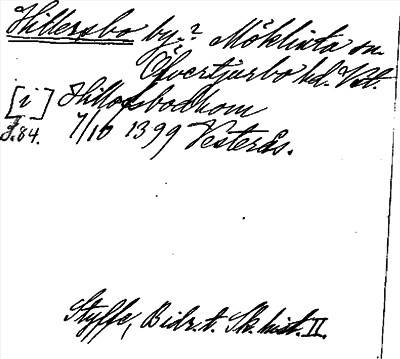 Hillersbo by? Möklinta sn.
Öfvertjurbo hd. Vstl.
[i] Hillofsbodhom
S.84. 7/10 1399 Vesterås.
Styffe, Bidr. t. Sk. hist. II.